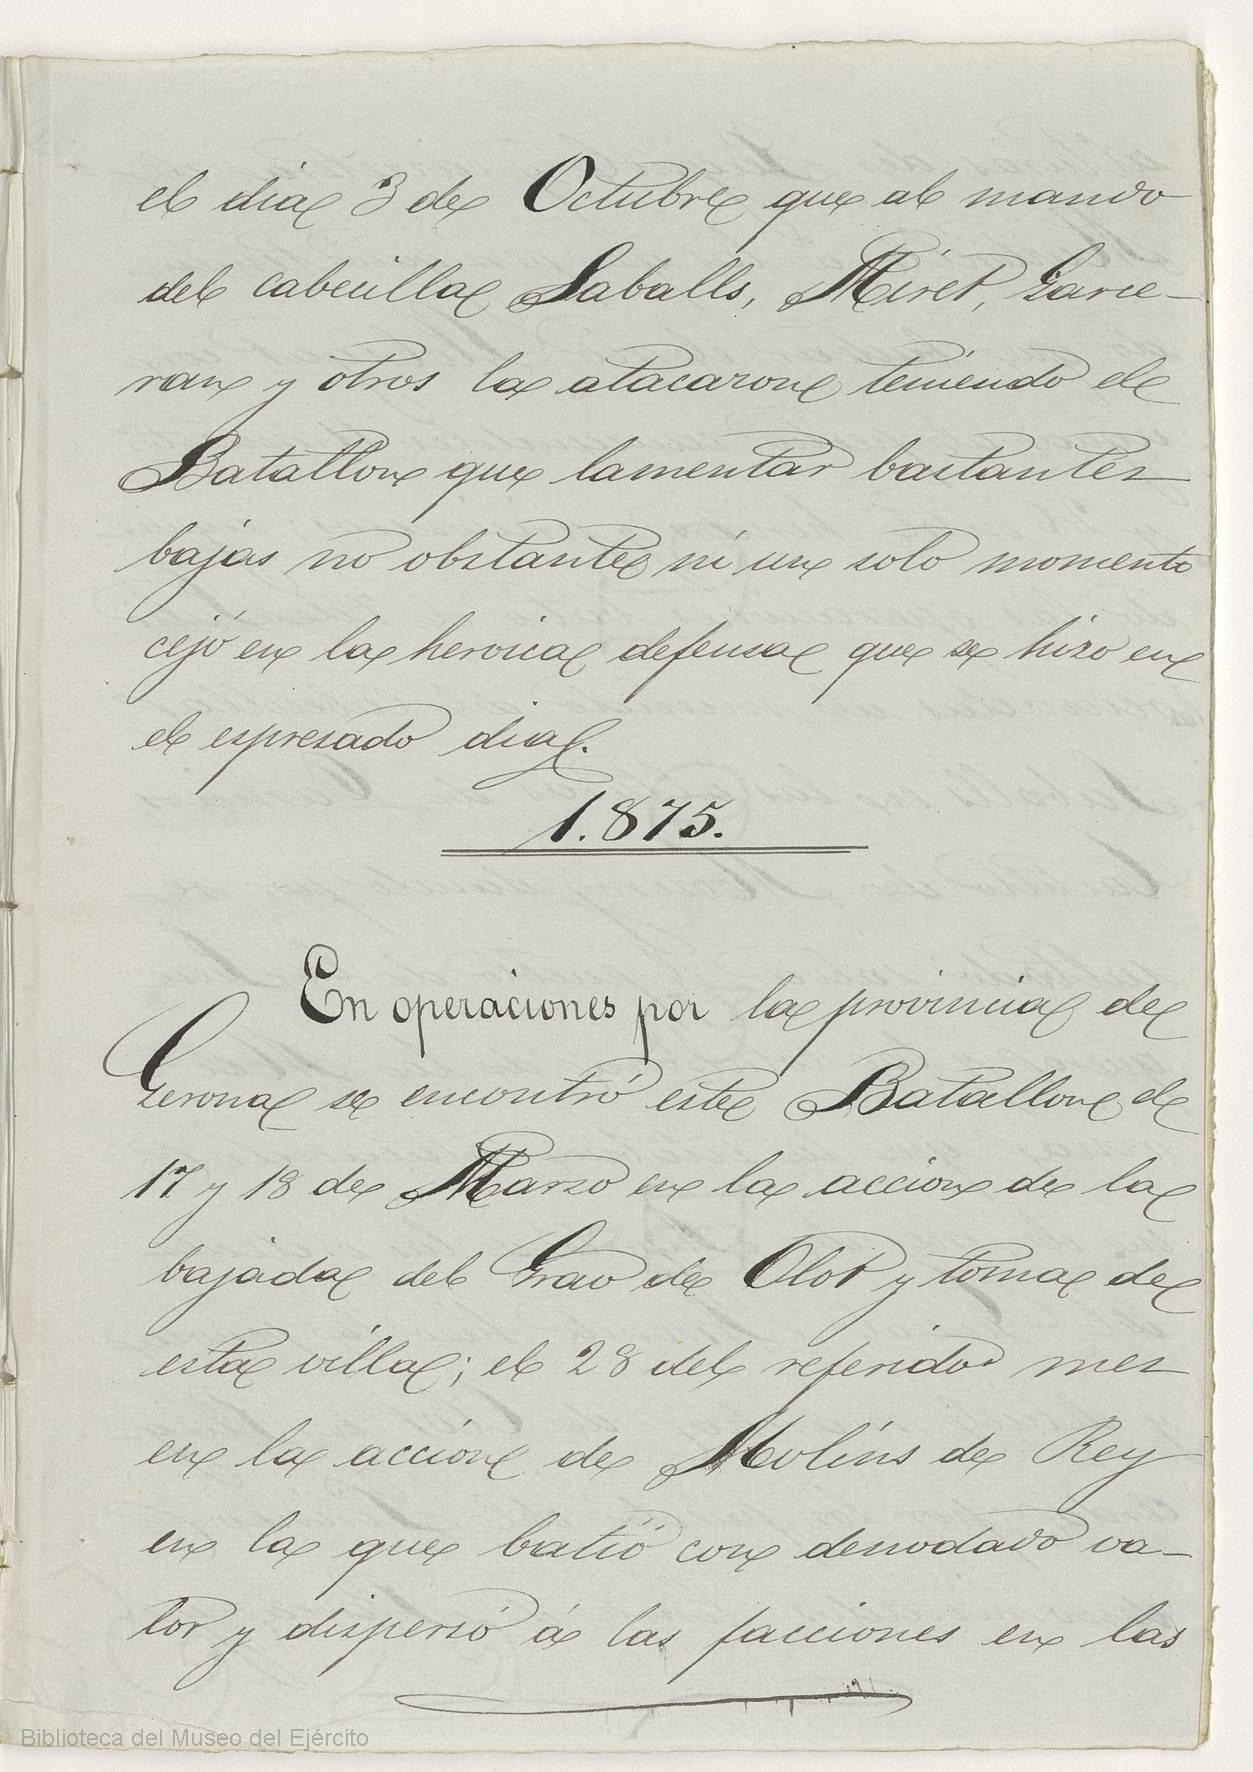 el dia 3 de Octubre que al mando
del cabecilla Saballs, Miret, Garce-
ran y otros la atacaron teniendo el
Batallon que lamentar bastantes
bajas no obstante ni un solo momento
cejó en la heroica defensa que se hizo en
el espresado dia.
1.875.
En operaciones por la provincia de
Gerona se encontró este Batallon el
17 y 18 de Marzo en la accion de la
bajada del Grao de Olot y toma de
esta villa; el 28 del referido mes
en la accion de Molins de Rey
en la que batió con denodado va-
lor y dispersó á las facciones en las
Biblioteca del Museo del Ejército